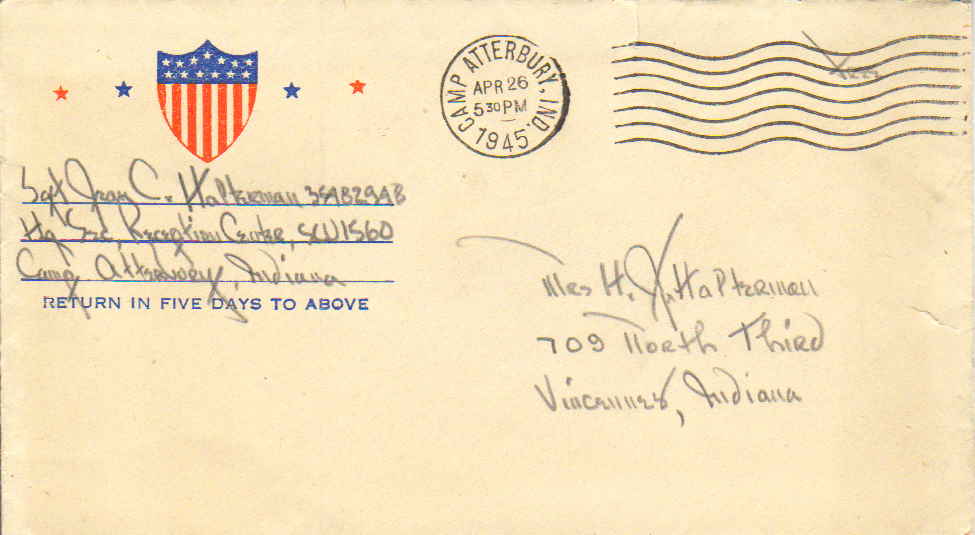 CAMP ATTERBURY, IND.
APR 26
5 30 PM
1945
Free
Sgt C. Halterman
Hq Sec, Reception Center, SCU 1560
Camp Atterbury, Indiana
RETURN IN FIVE DAYS TO ABOVE
Mrs H. J. Halterman
709 North Third
Vincennes, Indiana